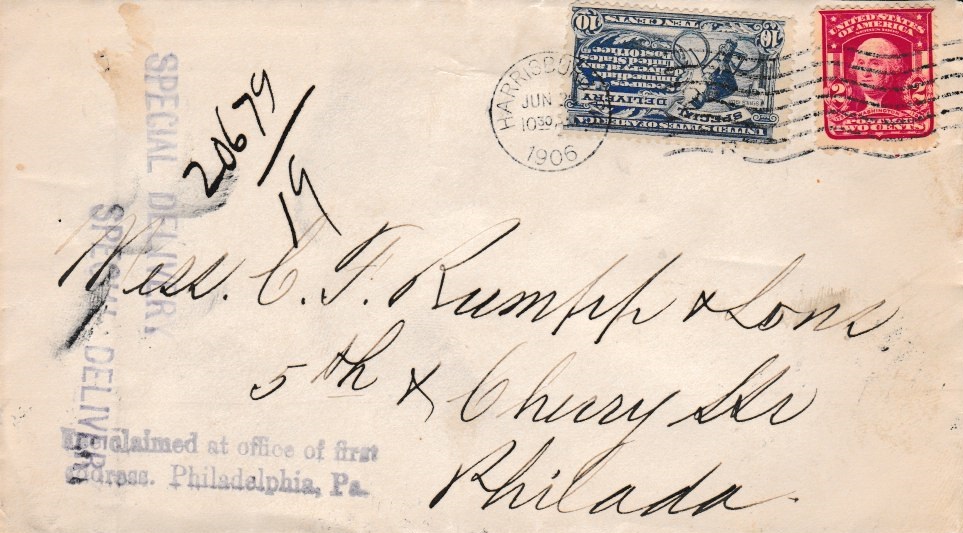 SPECIAL DELIVERY
SPECIAL DELIVERY
20679
19
HARRISBURG
JUN
10 30
1906
10 TEN CENTS 10
SPECIAL
DELIVERY
UNITED STATES OF AMERICA
UNITED STATES
OF AMERICA
2 2
TWO CENTS
Mess. C. F. Rumpp & Sons.
5th & Cherry Sts
Philada.
claimed at office of first
address. Philadelphia, Pa.